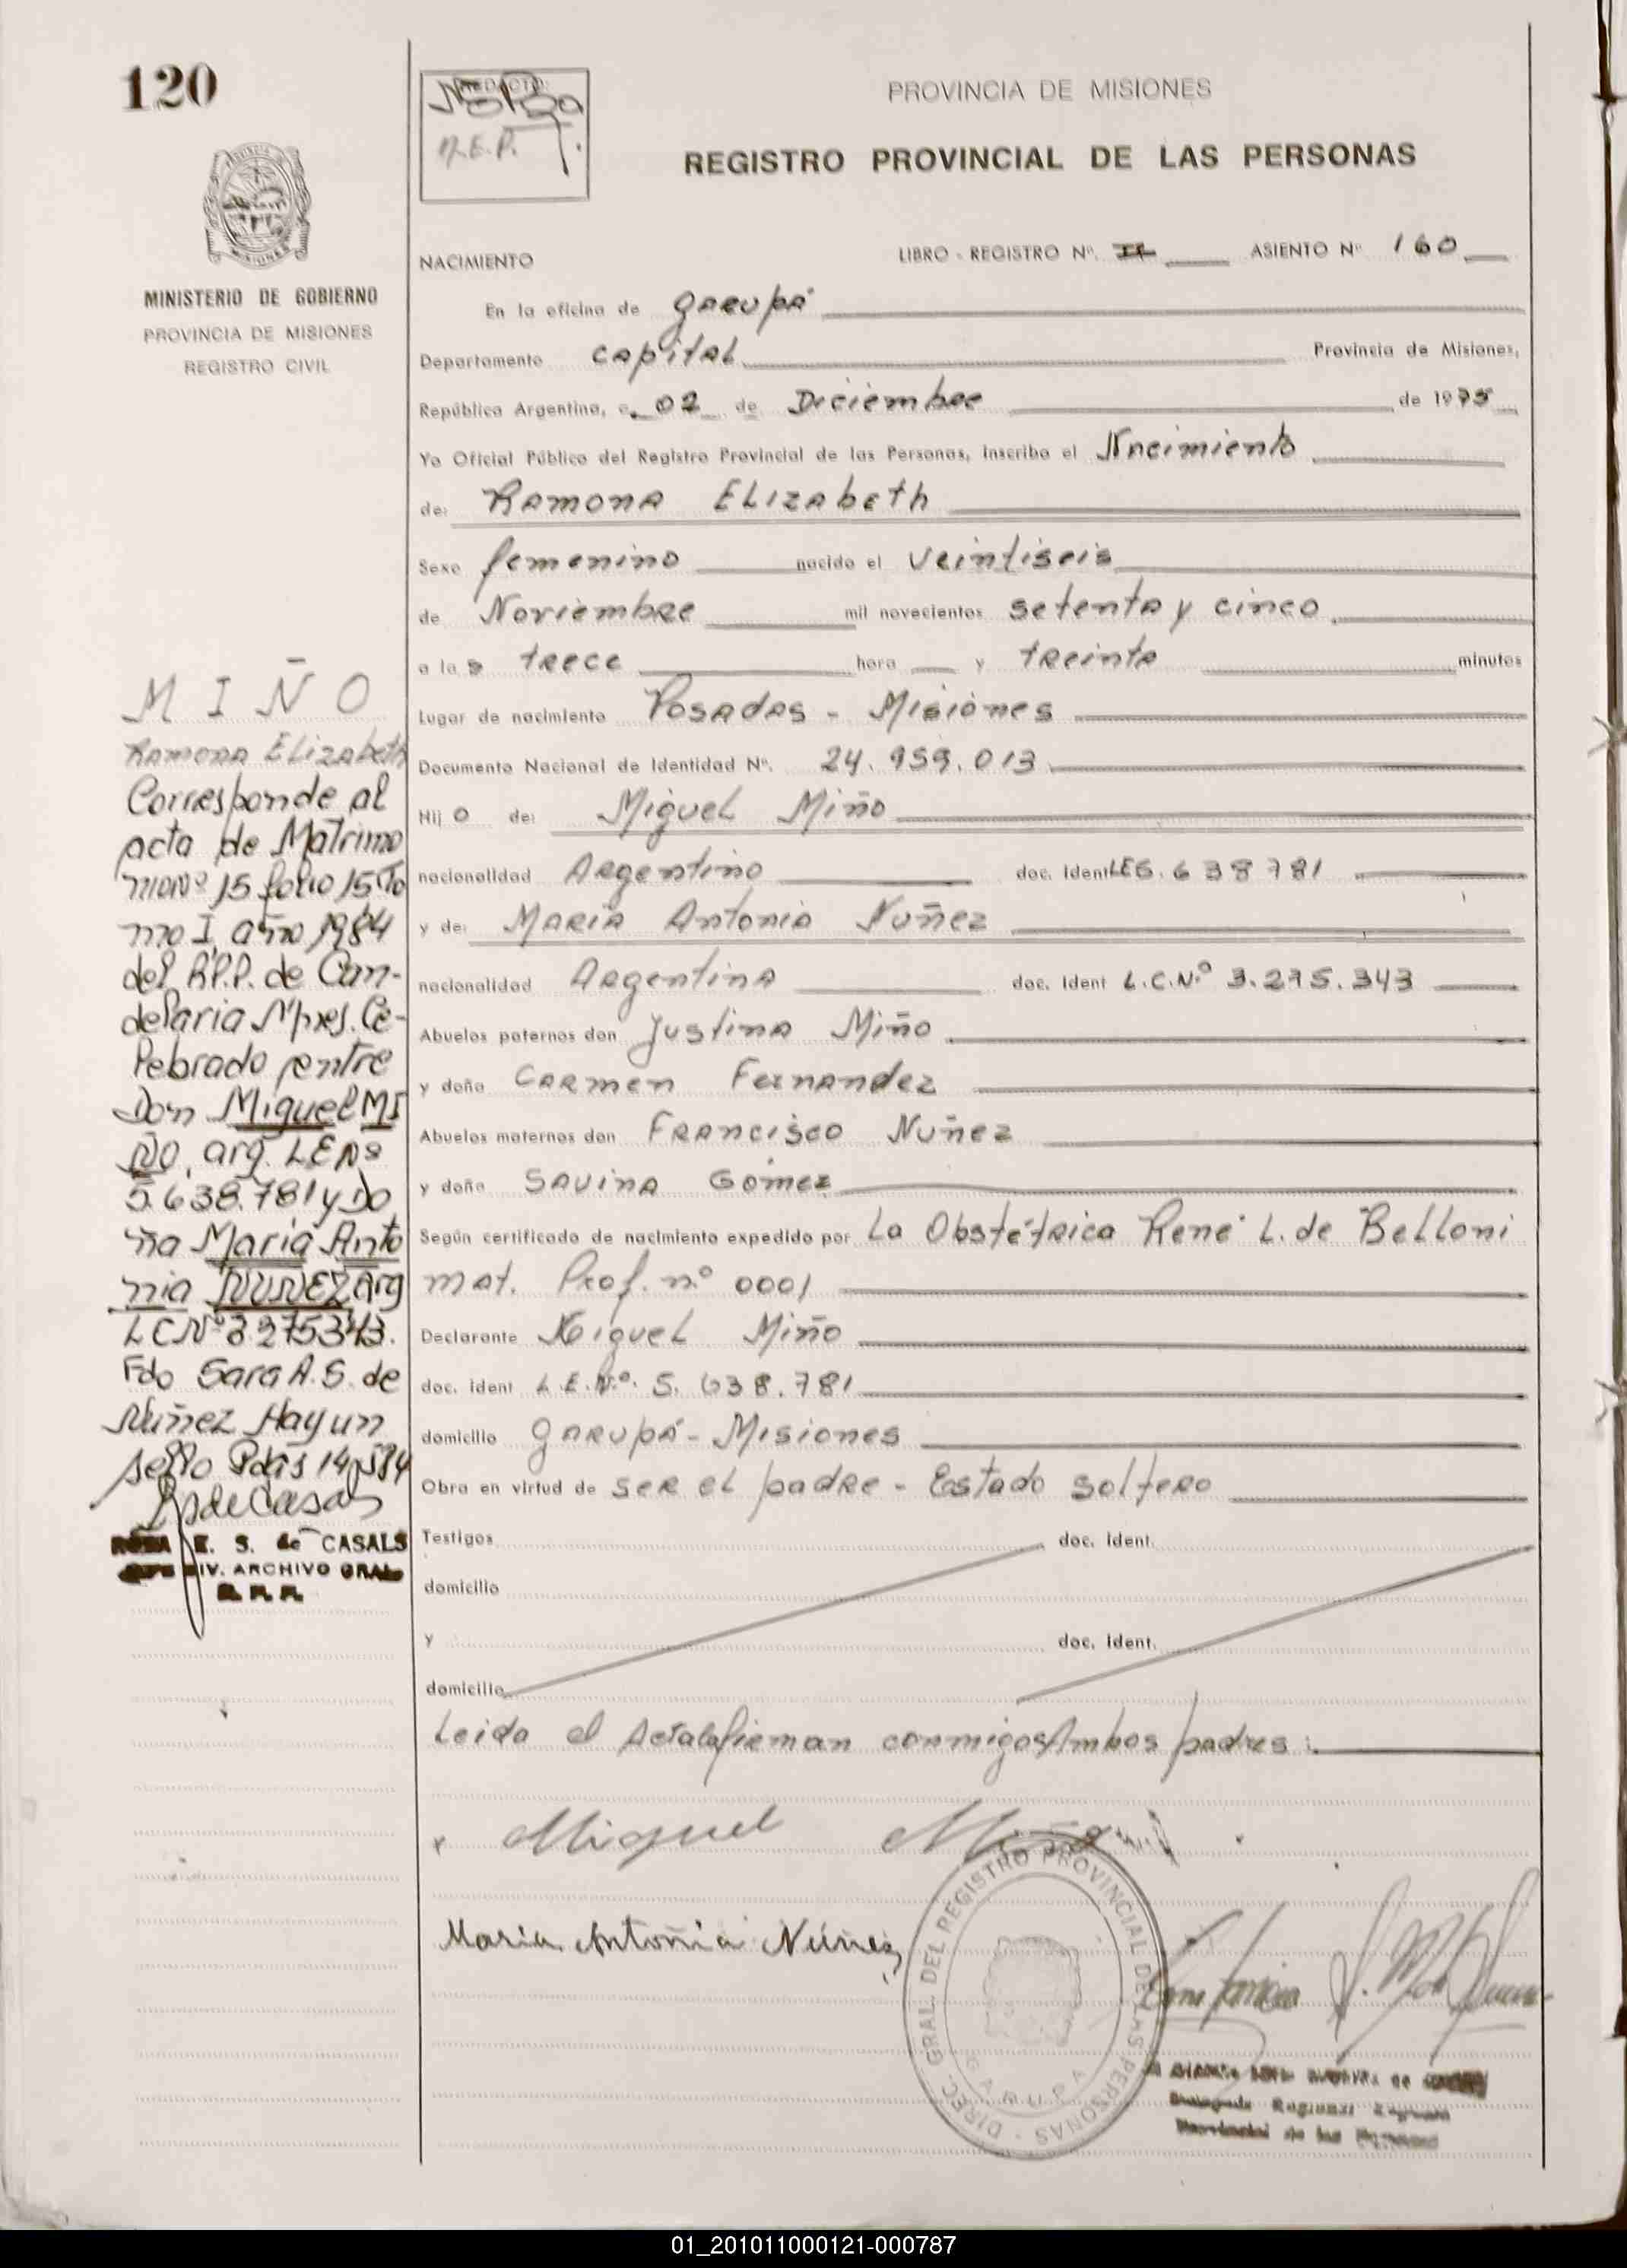 120
REDACTO:
N.E.P.
PROVINCIA DE MISIONES
REGISTRO PROVINCIAL DE LAS PERSONAS
MINISTERIO DE GOBIERNO
PROVINCIA DE MISIONES
REGISTRO CIVIL
NACIMIENTO
LIBRO - REGISTRO Nº. II ASIENTO Nº 160
En la oficina de Garupá
Departamento Capital Provincia de Misiones,
República Argentina, a 02 de Diciembre de 1975
Yo Oficial Público del Registro Provincial de las Personas, inscribo el Nacimiento
de: Ramona Elizabeth
Sexo femenino nacido el veintiseis
de Noviembre mil novecientos setenta y cinco
a las trece hora y treinta minutos
Lugar de nacimiento Posadas - Misiones
Documento Nacional de Identidad Nº. 24.959.013
Hij o de: Miguel Miño
nacionalidad Argentino doc. Ident LE 5.638781
y de: Maria Antonia Nuñez
nacionalidad Argentina doc. Ident L.C.N.º 3.275.343
Abuelos paternos don Justina Miño
y doña Carmen Fernandez
Abuelos maternos don Francisco Nuñez
y doña Savina Gómez
Según certificado de nacimiento expedido por La Obstétrica René L. de Belloni
mat. Prof. n.º 0001
Declarante Miguel Miño
doc. ident L.E.N.º. 5.638.781
domicilio Garupá - Misiones
Obra en virtud de ser el padre - Estado soltero
Testigos doc. ident.
domicilio
y doc. ident.
domicilio
Leida el Acta la firman conmigo Ambos padres:
x Miguel Miño
Maria Antoñia Núñez
DIREC. GRAL. DEL REGISTRO PROVINCIAL DE LAS PERSONAS
GARUPA
MIÑO
Ramona Elizabeth
Corresponde al
acta de Matrimo
nio Nº 15 folio 15 To
mo I, año 1984
del R.P.P. de Can-
delaria Mnes. Ce-
lebrado entre
Don Miguel MI
ÑO, arg. LE Nº
5.638.781 y Do
ña Maria Anto
nia NUÑEZ Arg
LC Nº 3.275343.
Fdo Sara A. S. de
Nuñez Hay un
sello Pdas 14
de Casals
ROSA E. S. de CASALS
DIV. ARCHIVO GRAL
R. P. P.
01_201011000121-000787